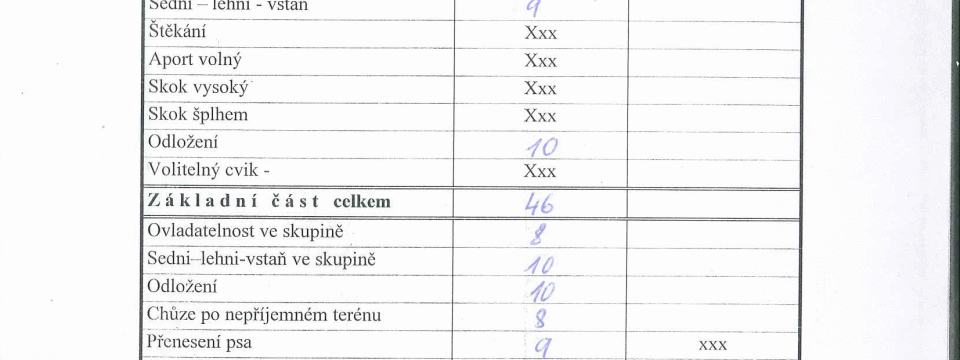 Sedni – lehni - vstaň 9
Štěkání Xxx
Aport volný Xxx
Skok vysoký Xxx
Skok šplhem Xxx
Odložení 10
Volitelný cvik - Xxx
Základní část celkem 46
Ovladatelnost ve skupině 8
Sedni–lehni-vstaň ve skupině 10
Odložení 10
Chůze po nepříjemném terénu 8
Přenesení psa 9 xxx